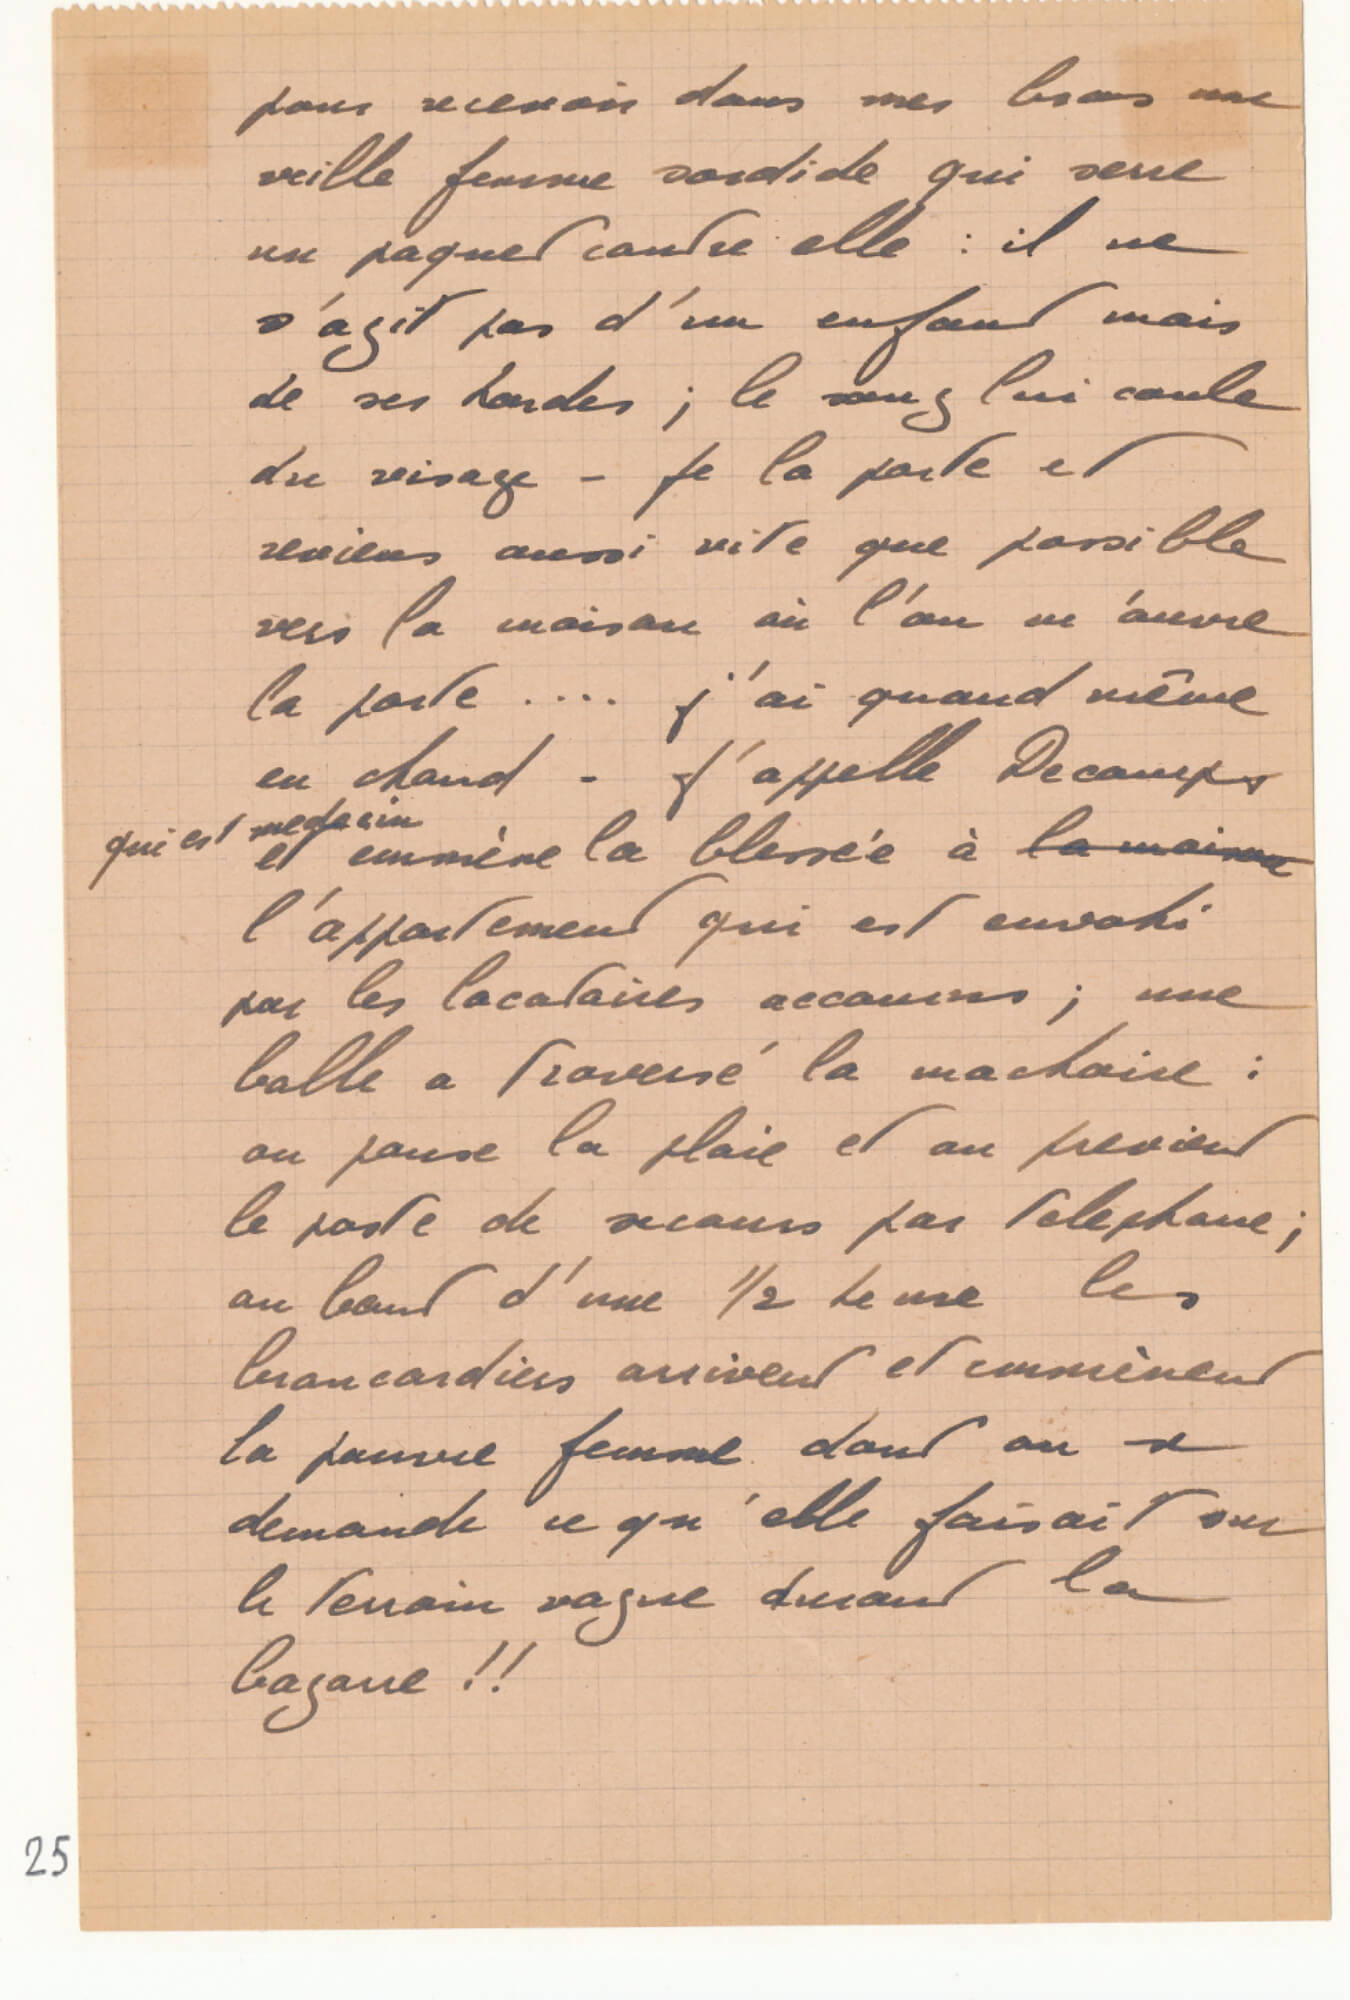 pour recevoir dans mes bras une
veille femme sordide qui serre
un paquet contre elle : il ne
s'agit pas d'un enfant mais
de ses hardes ; le sang lui coule
du visage - Je la porte et
reviens aussi vite que possible
vers la maison où l'on m'ouvre
la porte .... j'ai quand même
eu chaud - J'appelle Decamps
qui est medecin
et emmène la blessée à la maison
l'appartement qui est envahi
par les locataires accourus ; une
balle a traversé la machoire :
on panse la plaie et on previent
le poste de secours par telephone ;
au bout d'une 1/2 heure les
brancardiers arrivent et emmènent
la pauvre femme dont on se
demande ce qu'elle faisait sur
le terrain vague durant la
bagarre !!
25